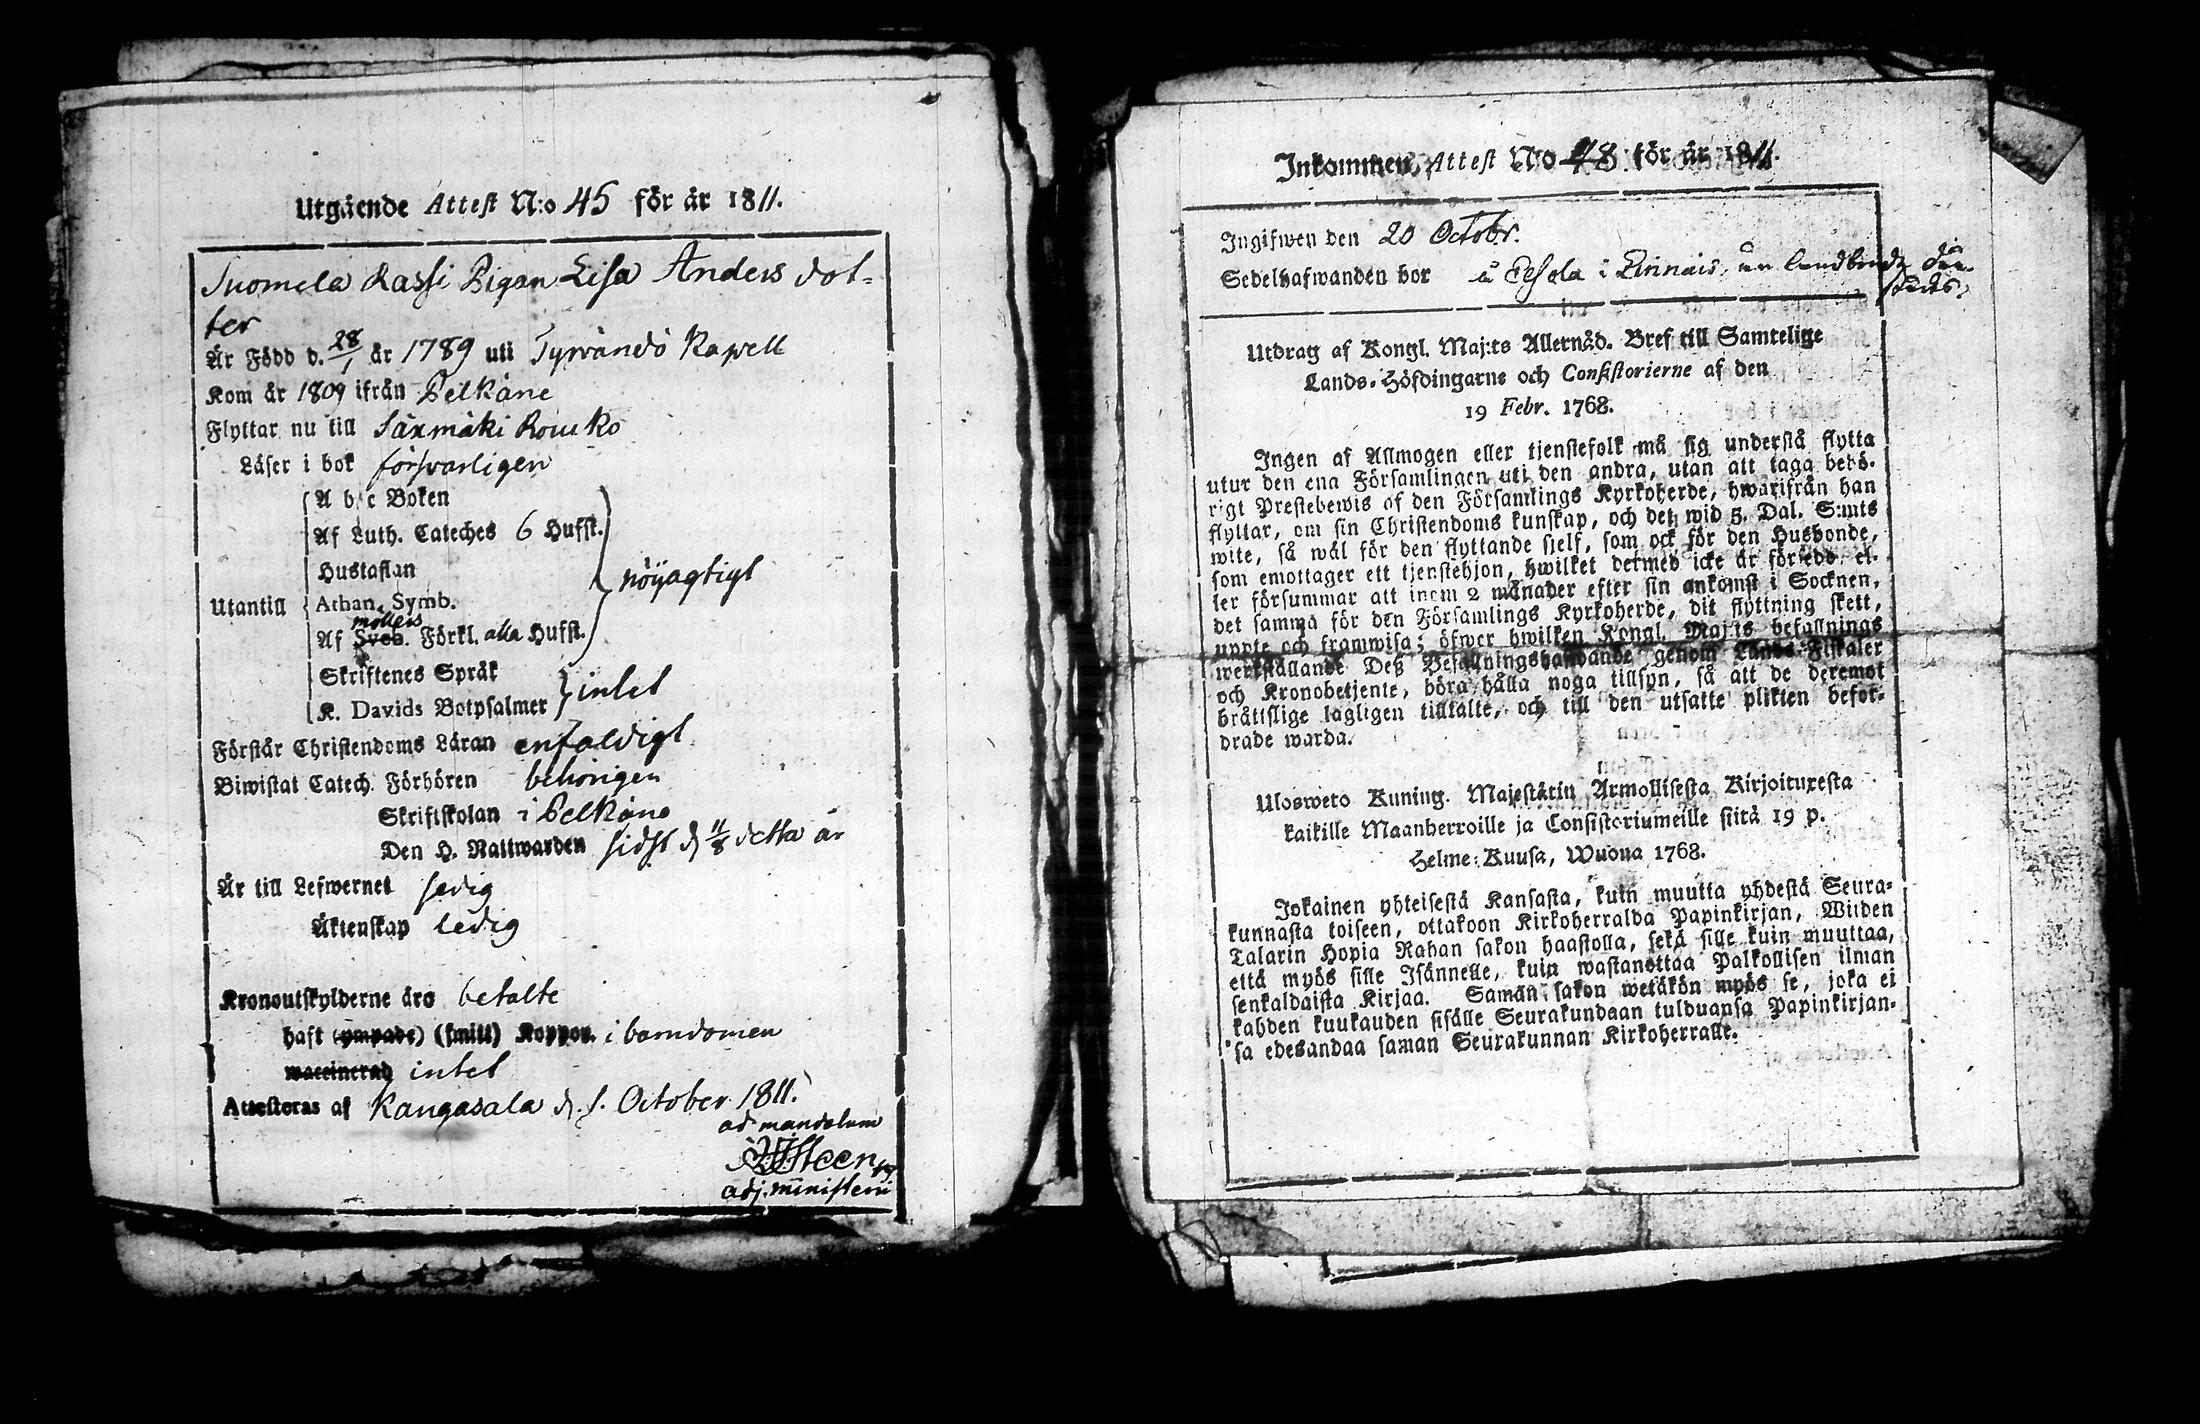 Utgående Attest N:o 45 för år 1811.
Suomela Rassi Pigan Lisa Anders dot-
ter
Är Född d. 28/1 år 1789 uti Tyrvändö Kapell
Kom år 1809 ifrån Pelkäne
Flyttar nu till Säxmäki Rouko
Läser i bok försvarligen
A b c Boken
Af Luth. Cateches 6 Hufst.
Hustaflan
nöÿagtigt
Utantill
Athan. Symb.
möllers
Af Sveb. Förkl. alla Hufst.
Skriftenes Språk
intet
K. Davids Botpsalmer
Förstår Christendoms Läran enfaldigt
Biwistat Catech. Förhören behörigen
Skriftskolan i Pelkäne
Den H. Nattwarden sidst d 11/8 detta år
Är till Lefwernet sedig
Äktenskap ledig
Kronoutskylderne äro betalte
haft (ympade) (smitt) Koppor. i barndomen
waccinerad intet
Attesteras af Kangasala d. 1. October 1811.
ad mandatum
adj. ministerii
Inkommen Attest No 48 för år 1811.
Ingifwen den 20 Octobr.
Sedelhafwanden bor å
Utdrag af Kongl. Maj:ts Allernåd. Bref till Samtelige
Lands-Höfdingarne och Consistorierne af den
19 Febr. 1768.
Ingen af Allmogen eller tjenstefolk må sig understå flytta
utur den ena Församlingen uti den andra, utan att taga behö-
rigt Prestebewis af den Församlings Kyrkoherde, hwarifrån han
flyttar, om sin Christendoms kunskap, och det wid 5. Dal. S:mts
wite, så wäl för den flyttande sjelf, som ock för den Husbonde,
som emottager ett tjenstehjon, hwilket dermed icke är försedd, el-
ler försummar att inom 2 månader efter sin ankomst i Socknen,
det samma för den Församlings Kyrkoherde, dit flyttning skett,
uppte och framwisa; öfwer hwilken Kongl. Maj:ts befallnings
werkställande Deß Befallningshafwande genom Lands-Fiskaler
och Kronobetjente, böra hålla noga tillsyn, så att de deremot
bråttslige lagligen tilltalte, och till den utsatte plikten befor-
drade warda.
Uloswето Kuning. Majestätin Armollisesta Kirjoituxesta
kaikille Maanherroille ja Consistoriumeille siitä 19 p.
Helme-Kuusa, Wuona 1768.
Jokainen yhteisestä Kansasta, kuin muutta yhdestä Seura-
kunnasta toiseen, ottakoon Kirkoherralda Papinkirjan, Wiiden
Talarin Hopia Rahan sakon haastolla, sekä sille kuin muuttaa,
että myös sille Isännelle, kuin wastanottaa Palkollisen ilman
senkaldaista Kirjaa. Samän sakon wetäkön myös se, joka ei
kahden kuukauden sisälle Seurakundaan tulduansa Papinkirjan-
sa edesandaa saman Seurakunnan Kirkoherralle.